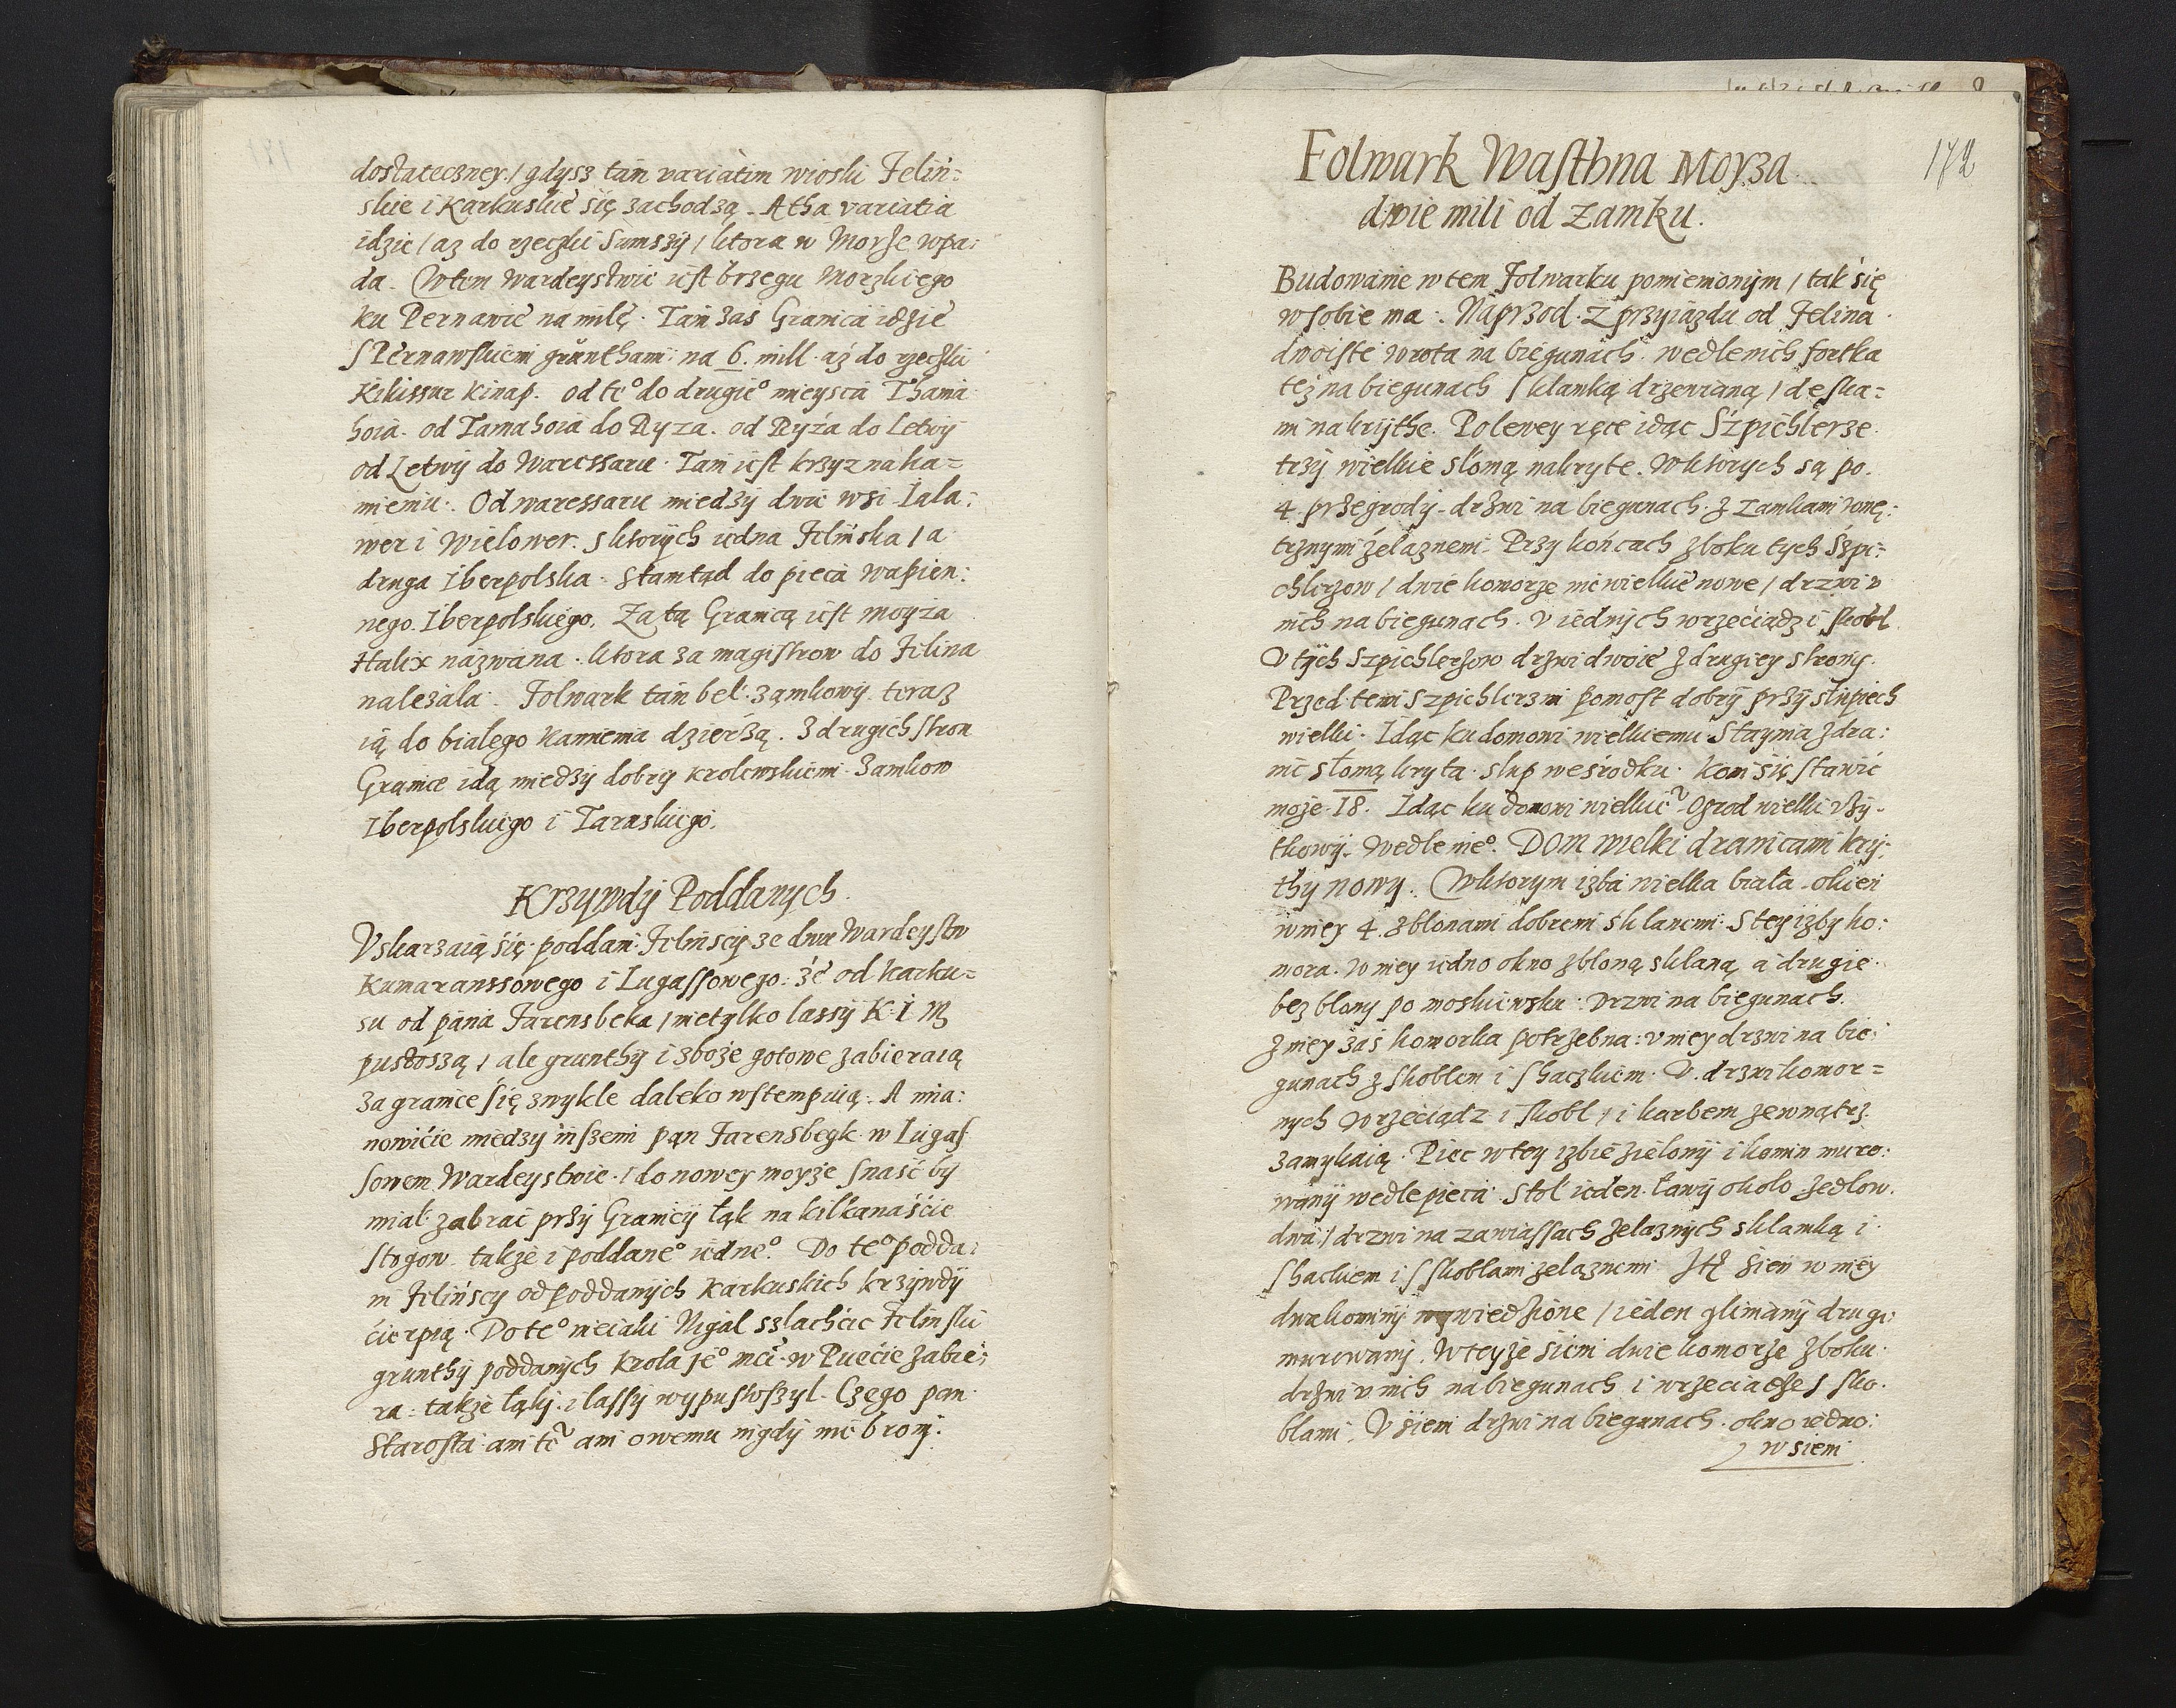 dostateczney / gdysz tam variatim wioski Felin=
skie i Karkuskie się zachodzą. A tha variatia
idzie / aż do rzeczki Sumszy / ktora w Morze wpa:
da. W tem Wardeystwie iest brzegu Morzkiego
ku Pernawie na milę. Tam zas Granica idzie
s Pernawskiemi grunthami na 6. mill. aż do rzeczki
Kikissur Kinap. od te⁰ do drugie⁰ mieysca Thama
hoia. od Tamahoia do Ryza. od Ryża do Letwy
od Letwy do Waressaru. Tam iest krzyz na ka=
mieniu. Od waressaru miedzy dwie wsi Iala:
wer i Wielower. s ktorych iedna Felińska / a
druga Iberpolska. Stamtąd do pieca wapien:
nego Iberpolskiego. Za tą Granicą iest moyża
Halix nazwana. ktora za magistrow do Felina
nalezala. Folwark tam beł zamkowy teraz
ią do bialego kamienia dzierżą. z drugich stron
Granice idą miedzy dobry krolewskiemi zamkow
Iberpolskiego i Tarwskiego.
Krzywdy Poddanych.
Uskarzaią się poddani Felinscy ze dwu Wardeystw
Kumaranssowego i Lugassowego: że od Karku=
su od pana Farensbeka / nietylko lassy K. I. M
pustoszą / ale grunthy i zboże gotowe zabieraią
za granice się zwykle daleko wstempuią. A mia:
nowićie miedzy inszemi pan Farensbegk w Lugas
sowem Wardeystwie / do nowey moyze snaść by
miał zabrać przy Granicy łąk na kilkanaśćie
stogow. takze i poddane⁰ iedne⁰. Do te⁰ podda:
ni Felińscy od poddanych Karkuskich krzywdy
ćierpią. Do te⁰ nieiaki Nigal szlachćic Felinski
grunthy poddanych Krola Je⁰ mći w Puećie zabie:
ra: takze łąki i lassy wypustoszyl. Czego pan
Starosta ani te⁰ ani owemu nigdy nie broni.
172
Folwark Wasthna Moyza
dwie mili od Zamku.
Budowanie w tem Folwarku pomienionym / tak się
w sobie ma. Naprzod z przyiazdu od Felina
dwoiste wrota na biegunach. wedle nich fortka
też na biegunach s klamką drzewianą / deska=
mi nakrythe. Po lewey ręce idąc Szpichlerze
trzy wielkie słomą nakryte. W ktorych są po
4. przegrody. drzwi na biegunach z zamkami wnę:
trznymi żelaznemi. Przy końcach z boku tych Szpi:
chlerzow / dwie komorze niewielkie nowe / drzwi v
nich na biegunach. v iednych wrzećiądz i skobl
V tych Szpichlerzow drzwi dwoie z drugiey strony.
Przed temi Szpichlerzmi pomost dobry przy słupiech
wielki. Idąc ku domowi wielkiemu Staynia zdra:
nic słomą kryta. słup weśrodku. Koni się stawić
moze 18. Idąc ku domowi wielkie⁰ Ogrod wielki vży=
tkowy. Wedle nie⁰. Dom wielki dranicami kry:
thy nowy. W ktorym izba wielka biała. okien
w niey 4. z błonami dobremi sklanemi. S tey izby ko:
mora. w niey iedno okno z błoną sklaną a drugie
bez błony po moskiewsku. Drzwi na biegunach.
z niey zaś komorka potrzebna: v niey drzwi na bie:
gunach z skoblem i s haczkiem. V drzwi komor=
nych wrzećiądz i skobl / i karbem zewnątrz
zamykaią. Piec w tey izbie zielony i komin muro:
wany wedle pieca. Stol ieden. ławy około. zedlow
dwa / drzwi na zawiassach zelaznych s klamką i
s hackiem i s skoblami zelaznemi. Ite sień w niey
dwa kominy wywiedzione / ieden glimany drugi:
murowany. W teyże sieni dwie komorze z boku.
drzwi v nich na biegunach i wrzeciadze s sko=
blami. V sieni drzwi na biegunach. okno iedno:
w sieni